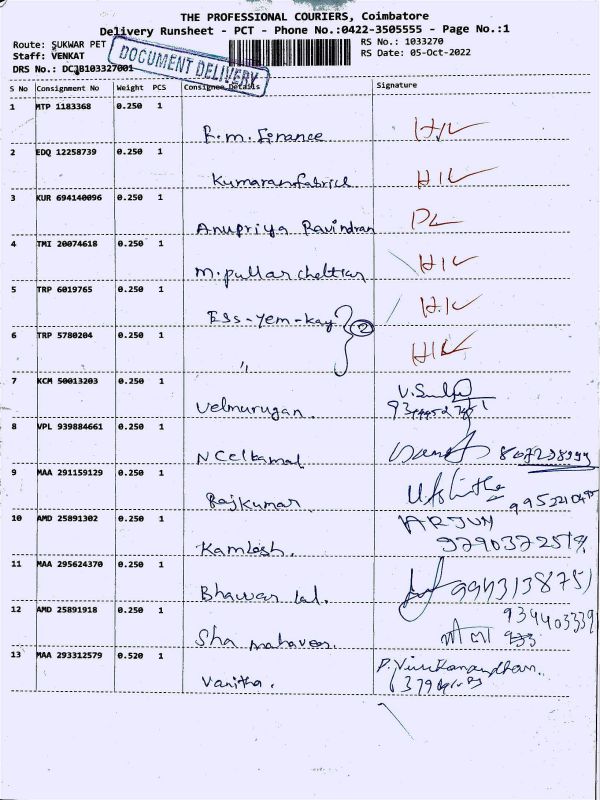 THE PROFESSIONAL COURIERS, Coimbatore
Delivery Runsheet - PCT - Phone No.:0422-3505555 - Page No.:1
Route: SUKWAR PET
RS No.: 1033270
Staff: VENKAT
RS Date: 05-Oct-2022
DRS No.: DCJB103327001
DOCUMENT DELIVERY
S No Consignment No Weight PCS Consignee Details Signature
1 MTP 1183368 0.250 1
R.m. Finance
2 EDQ 12258739 0.250 1
Kumaran fabrics
3 KUR 694140096 0.250 1
Anupriya Ravindran
4 TMI 20074618 0.250 1
M. Chettiar
5 TRP 6019765 0.250 1
Ess-yem-kay 2
6 TRP 5780204 0.250 1
"
7 KCM 50013203 0.250 1
Velmurugan.
8 VPL 939884661 0.250 1
Neelkamal
9 MAA 291159129 0.250 1
Rajkumar
10 AMD 25891302 0.250 1 ARJUN
Kamlesh.
11 MAA 295624370 0.250 1
Bhawar lal.
12 AMD 25891918 0.250 1
Sha mahaveer.
13 MAA 293312579 0.520 1
Vanitha.